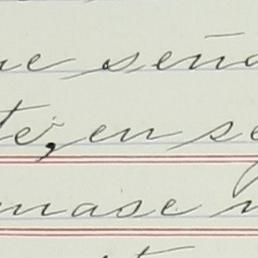 ue seña
te, en se
mase n